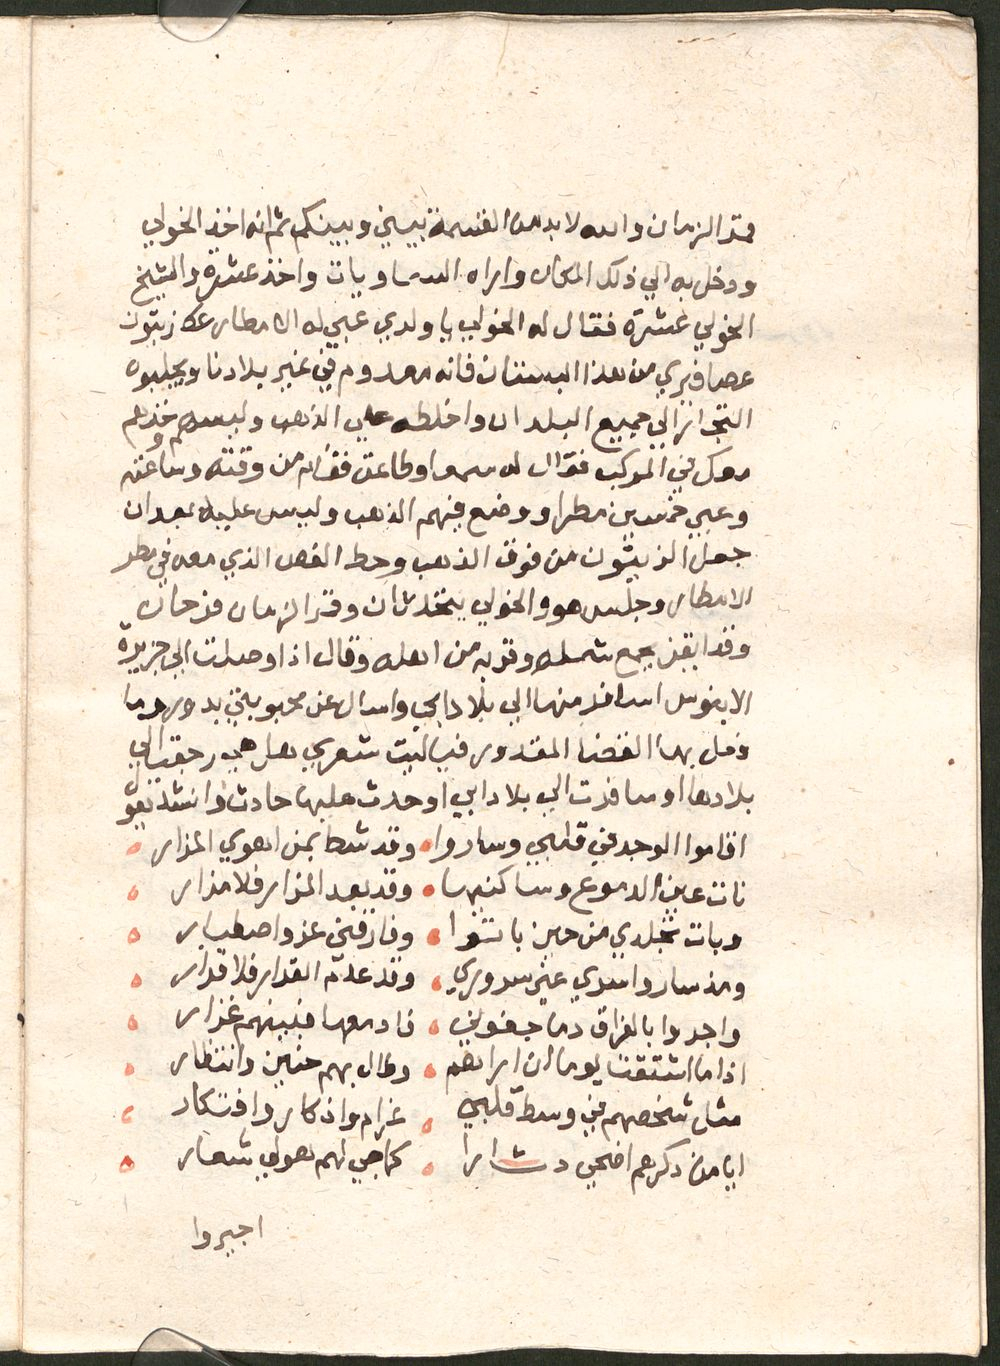 قمر الزمان والله لا بد من القسمة بيني وبينكم ثم انه اخذ الخولي
ودخل به الي ذلك المكان واراه السماويات واخذ عشرة والشيخ
الخولي عشرة فقال له الخولي يا ولدي عبي له الامطار من زيتون
عصافيري من هذا البستان فانه معدوم في غير بلادنا ويجلبوه
التجار الي جميع البلدان واخلطه علي الذهب ولبسهم وخذهم
معك في المركب فقال له سمعا وطاعة فقام من وقته وساعته
وعبي خمسين مطرا ووضع فيهم الذهب ولبس عليه بعد ان
جعل الزيتون من فوق الذهب وحط الفص الذي معه في مطر
الامطار وجلس هو والخولي يتحدثان وقمر الزمان فرحان
وقد ايقن بجمع شمله وقربه من اهله وقال اذا وصلت الي جزيرة
الابنوس اسافر منها الي بلاد ابي واسال عن محبوبتي بدور وما
فعل بها القضا المقدور فيا ليت شعري هل هي رجعت الي
بلادها او سافرت الي بلاد ابي او حدث عليها حادث وانشد يقول
اقاموا الوجد في قلبي وساروا • وقد شط بمن اهوي المزار •
نات عين الدموع وساكنيها • وقد بعد المزار فلا مزار •
وبات تجلدي من حين بانوا • وفارقني عز واصطبار •
ومذ ساروا اسري عني سروري • وقد عدم القرار فلا قرار •
واجروا بالفراق دما جفوني • فادمعها فبينهم غزار •
اذا ما اشتقت يوما ان اراهم • وطال بهم حنين وانتظار •
مثل شخصهم في وسط قلبي • غرام واذكار وافتكار •
ايا من ذكرهم اضحي دثارا • كما حبي لهم هو لي شعار •
اجيروا